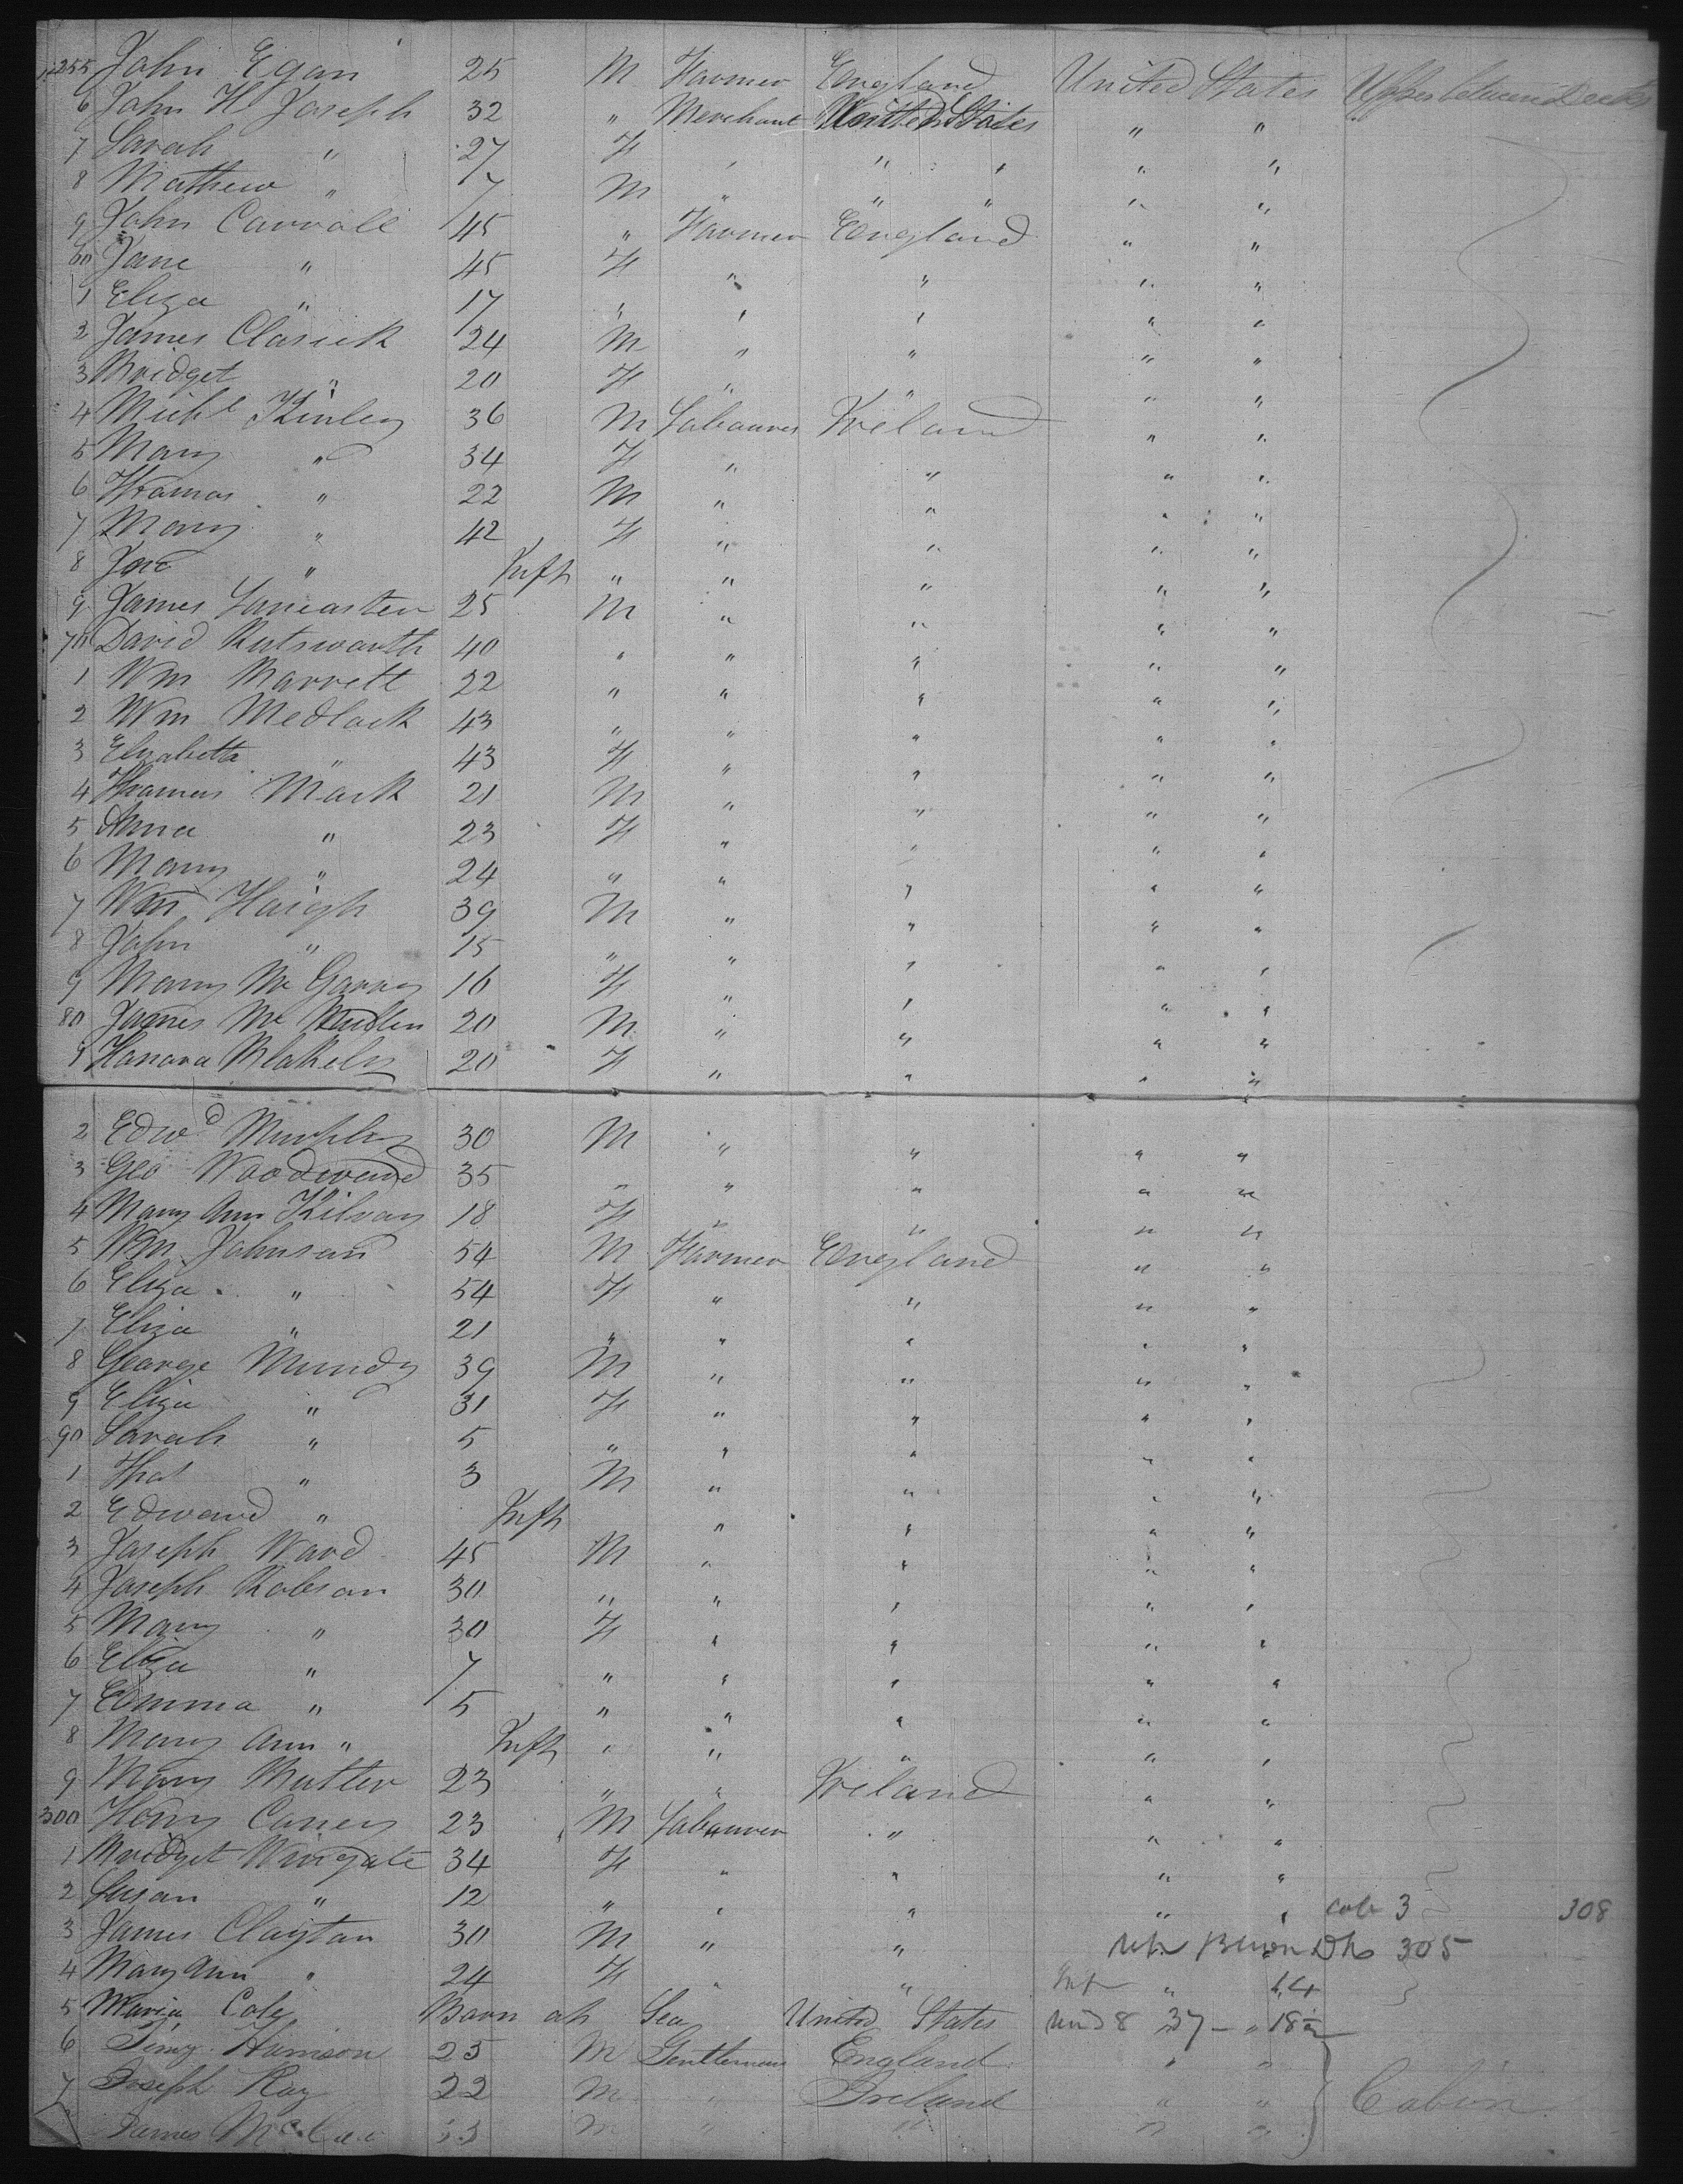 255 John Egan 25 M Farmer England United States Upper between Decks
6 John H Joseph 32 " Merchant United States " "
7 Sarah " 27 F " " " " "
8 Mathew " 7 M " " " " "
9 John Carroll 45 " Farmer England " "
60 Jane " 45 F " " " "
1 Eliza " 17 " " " " "
2 James Clasick 24 M " " " "
3 Bridget " 20 F " " " "
4 Michl Kinley 36 M Labourer Ireland " "
5 Mary " 34 F " " " "
6 Thomas " 22 M " " " "
7 Mary " 42 F " " " "
8 Jno " Inft " " " " "
9 James Lancaster 25 M " " " "
70 David Rutsworth 40 " " " " "
1 Wm Barrett 22 " " " " "
2 Wm Medlock 43 " " " " "
3 Elizabeth " 43 F " " " "
4 Thomas Mack 21 M " " " "
5 Anna " 23 F " " " "
6 Mary " 24 " " " " "
7 Wm Haigh 39 M " " " "
8 John " 15 " " " " "
9 Mary Mc Garry 16 F " " " "
80 James Mc 20 M " " " "
1 Hanora Blakely 20 F " " " "
2 Edwd Murphy 30 M " " " "
3 Geo Woodward 35 " " " " "
4 Mary Ann Kilroy 18 F " " " "
5 Wm Johnson 54 M Farmer England " "
6 Eliza " 54 F " " " "
7 Eliza " 21 " " " " "
8 George Mundy 39 M " " " "
9 Eliza " 31 F " " " "
90 Sarah " 5 " " " " "
1 Thos " 3 M " " " "
2 Edward " Inft " " " "
3 Joseph Ward 45 M " " " "
4 Joseph Robson 30 " " " " "
5 Mary " 30 F " " " "
6 Eliza " 7 " " " " "
7 Emma " 5 " " " " "
8 Mary Ann " Inft " " " " "
9 Mary Butler 23 " " Ireland " "
300 Henry Carrey 23 M Labourer " " "
1 Bridget Wingate 34 F " " " "
2 Susan " 12 " " " " " cab 3 308
3 James Clayton 30 M " " 305
4 Mary Ann " 24 F " " Inf " 14
5 Maria Coly Born at Sea United States und 8 37 - " 18½
6 Harrison 25 M Gentleman England " "
7 Joseph Ray 22 M " Ireland " " Cabin
James 33 M " " " "